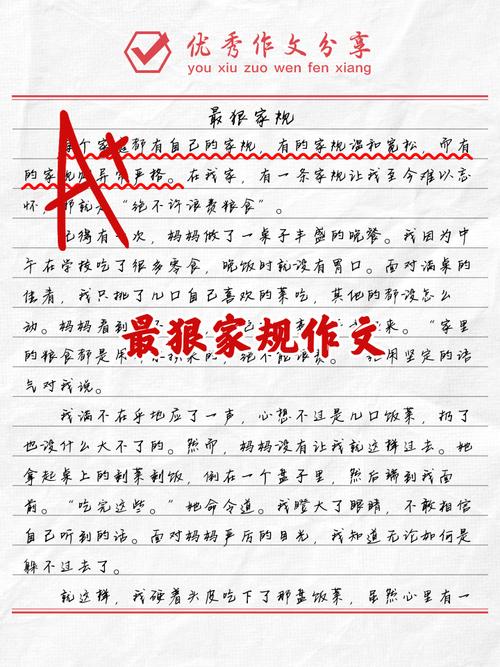 优秀作文分享
you xiu zuo wen fen xiang
最狠家规
A+
个家庭都有自己的家规，有的家规温和宽松，而有
的家规异常严格。在我家，有一条家规让我至今难以忘
怀，那就“绝不许浪费粮食”。
记得有一次，妈妈做了一桌子丰盛的晚餐。我因为中
午在学校吃了很多零食，晚饭时就没有胃口。面对满桌的
佳肴，我只挑了几口自己喜欢的菜吃，其他的都没怎么
动。妈妈看到来。“家里
最狠家规作文
的粮食都是用来的，绝不能浪费。”用坚定的语
气对我说。
我满不在乎地应了一声，心想不过是几口饭菜，扔了
也没什么大不了的。然而，妈妈没有让我就这样过去。她
拿起桌上的剩菜剩饭，倒在一个盘子里，然后端到我面
前。“吃完这些。”她命令道。我瞪大了眼睛，不敢相信
自己听到的话。面对妈妈严厉的目光，我知道无论如何是
躲不过去了。
就这样，我硬着头皮吃下了那盘饭菜，虽然心里有一